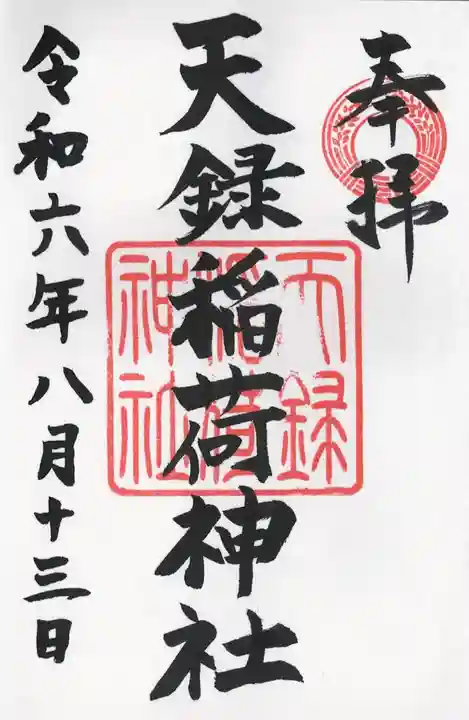 奉拝
天録稲荷神社
天録
稲荷
神社
令和六年八月十三日